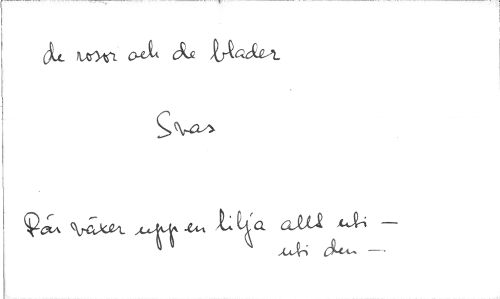 de rosor och de blader
Svas
Där växer upp en lilja allt uti —
uti den —.